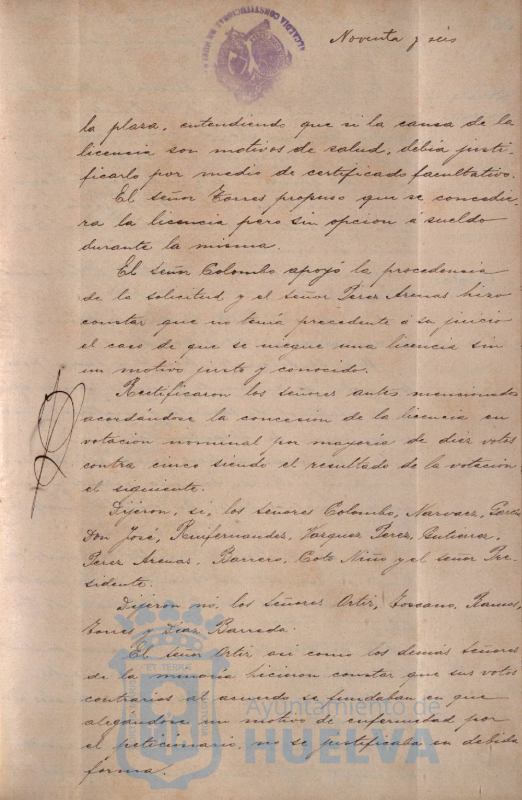 ALCALDIA CONSTITUCIONAL DE HUELVA
Noventa y seis
la plaza, entendiendo que si la causa de la
licencia son motivos de salud, debia justi-
ficarlo por medio de certificado facultativo.
El señor Torres propuso que se concedie-
ra la licencia pero sin opcion á sueldo
durante la misma.
El señor Colombo apoyó la procedencia
de la solicitud y el señor Perez Arenas hizo
constar que no tenia precedente á su juicio
el caso de que se niegue una licencia sin
un motivo justo y conocido.
Rectificaron los señores antes mencionados
acordándose la concesion de la licencia en
votacion nominal por mayoria de diez votos
contra cinco siendo el resultado de la votacion
el siguiente.
Dijeron, si, los señores Colombo, Narvaez, Garcia
Don José, Ruifernandez, Vazquez Perez, Gutierrez,
Perez Arenas, Barrero, Coto Niño y el señor Pre-
sidente.
Dijeron no, los señores Ortiz, Toscano, Ramos,
Torres y Diaz Barreda.
El señor Ortiz asi como los demás señores
de la minoria hicieron constar que sus votos
contrarios al acuerdo se fundaban en que
alegandose un motivo de enfermedad por
el peticionario, no se justificaba en debida
forma.
Ayuntamiento de
HUELVA